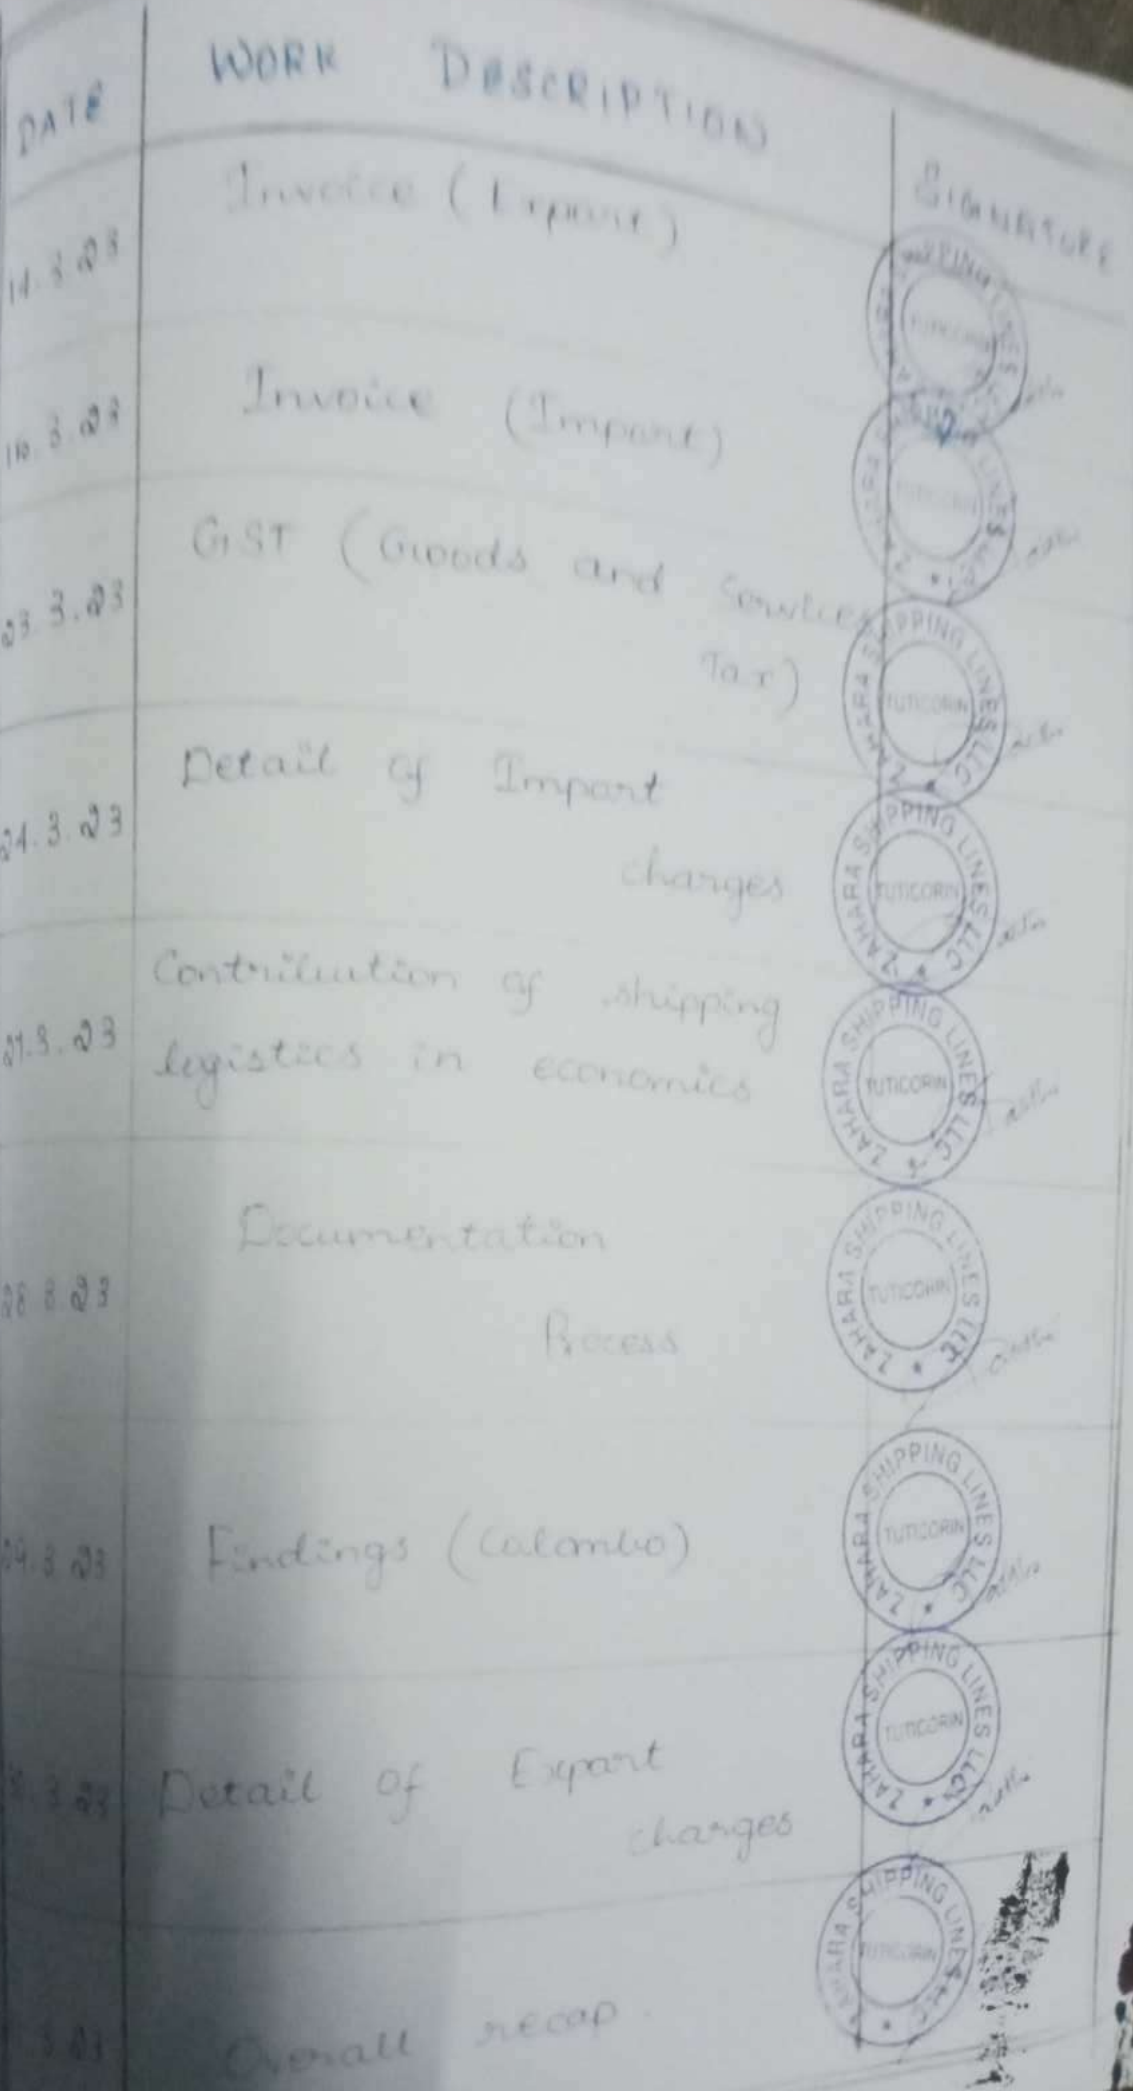 DATE WORK DESCRIPTION SIGNATURE
Invoice (Export)
ZAHARA SHIPPING LINES LLC TUTICORIN
3.23 Invoice (Import)
ZAHARA SHIPPING LINES LLC TUTICORIN
23.3.23 GST (Goods and Services
Tax)
ZAHARA SHIPPING LINES LLC TUTICORIN
24.3.23 Detail of Import
charges
ZAHARA SHIPPING LINES LLC TUTICORIN
27.3.23 Contribution of shipping
logistics in economics
ZAHARA SHIPPING LINES LLC TUTICORIN
28.3.23 Documentation
Process
ZAHARA SHIPPING LINES LLC TUTICORIN
29.3.23 Findings (Colombo)
ZAHARA SHIPPING LINES LLC TUTICORIN
3.23 Detail of Export
charges
ZAHARA SHIPPING LINES LLC TUTICORIN
Overall recap.
ZAHARA SHIPPING LINES LLC TUTICORIN